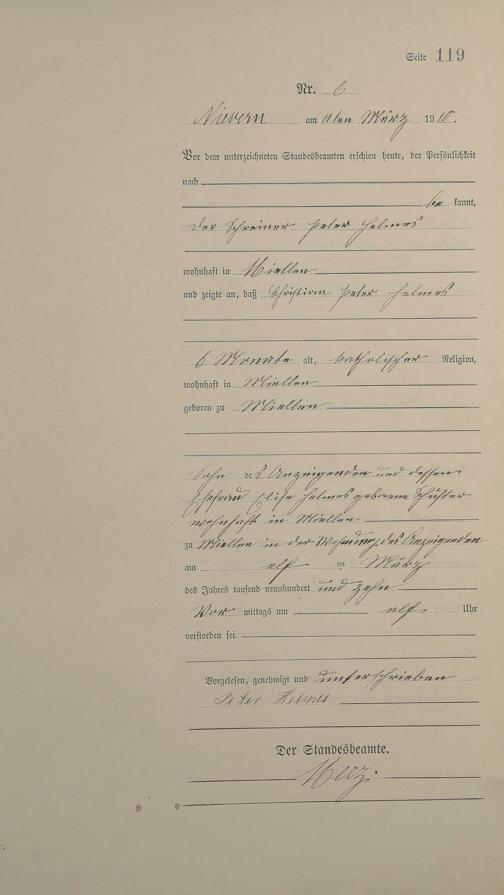 Seite 119
Nr. 6
Nievern am 11ten März 1910.
Vor dem unterzeichneten Standesbeamten erschien heute, der Persönlichkeit
nach
be kannt,
der Schreiner Peter Helmes
wohnhaft in Miellen
und zeigte an, daß Christian Peter Helmes
6 Monate alt, katholischer Religion,
wohnhaft in Miellen
geboren zu Miellen
Sohn des Anzeigenden und dessen
Ehefrau Elise Helmes geborene
wohnhaft in Miellen
zu Miellen in der Wohnung des Anzeigenden
am elf ten März
des Jahres tausend neunhundert und zehn
Vor mittags um elf Uhr
verstorben sei.
Vorgelesen, genehmigt und unterschrieben
Peter Helmes
Der Standesbeamte.